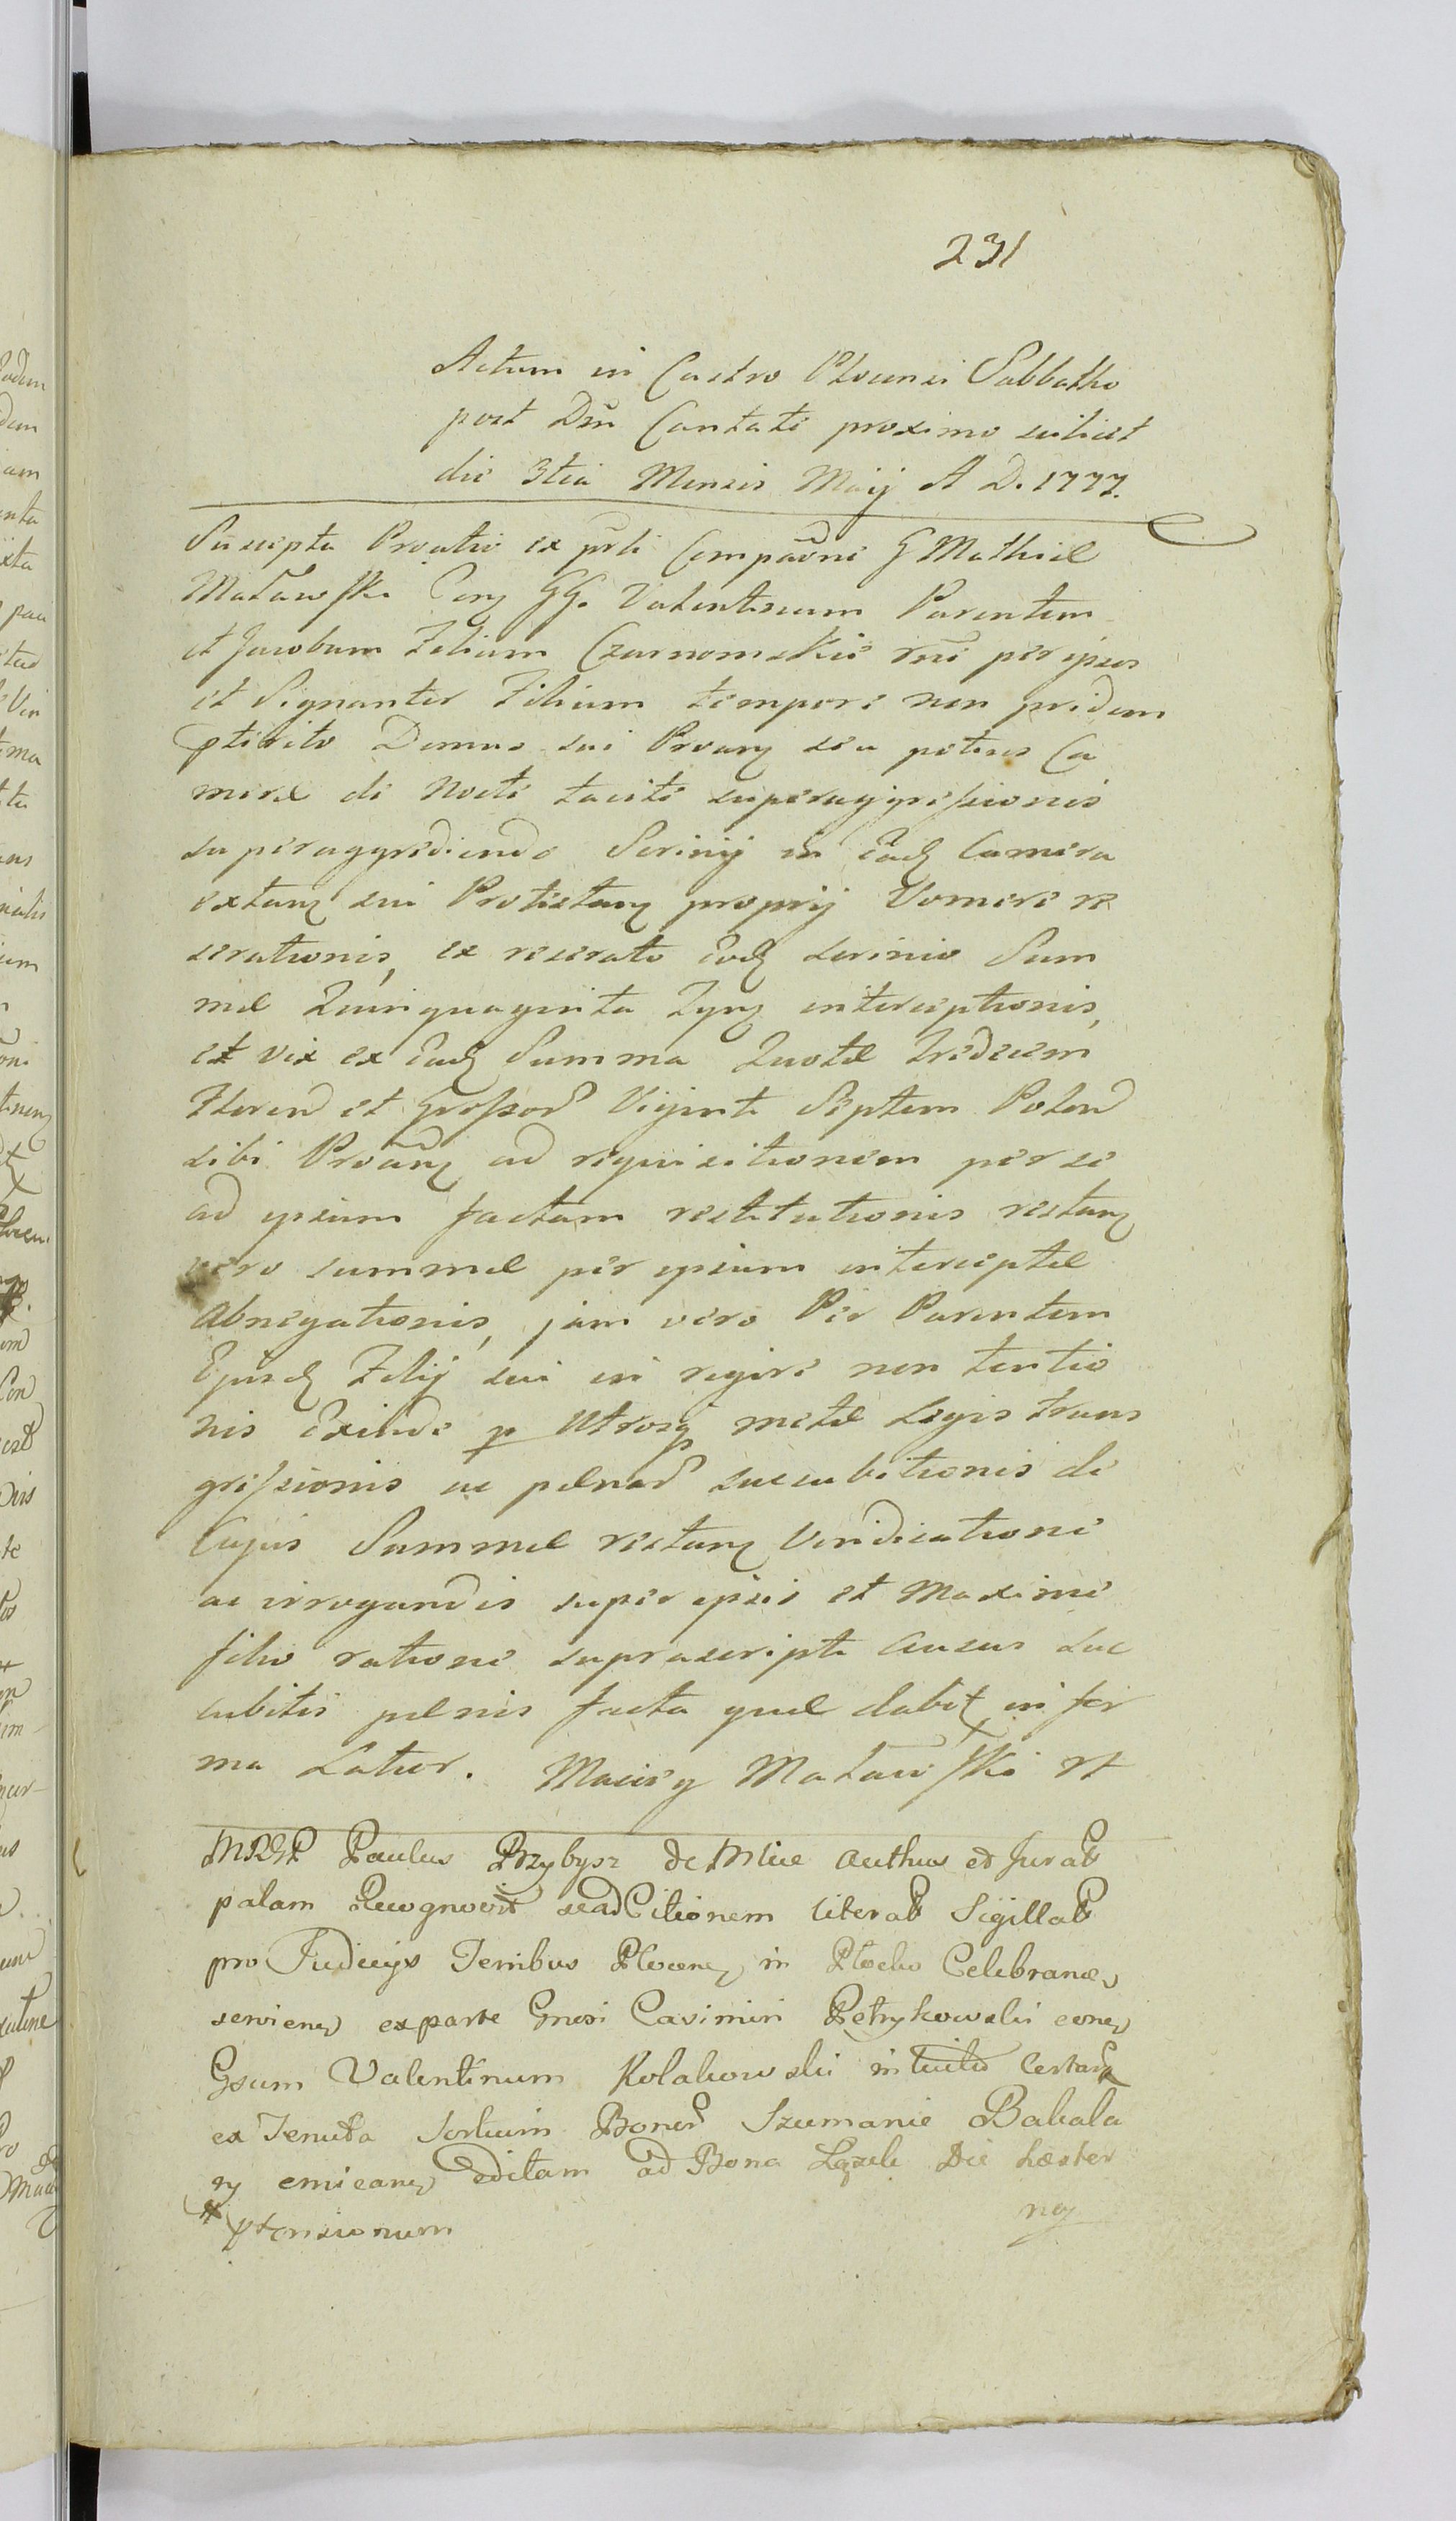 231
Actum in Castro Plocensi Sabbatho
post Dm̃ Cantate proximo scilicet
die 3tia Mensis Maij A D. 1777.
Suscepta Prõatio ex psti Compãone G Mathiæ
Małowski Cong GG. Valentinum Parentem
et Jacobum Filium Czarnomskie rñe per ipsos
et Signanter Filium tempore non pridem
ptterito Domus sui Proang seu potius Ca
meræ de Nocte tacite superaggressionis
superaggrediendo Scrinij in Eadg Camera
extang sui Protestang proprij Vomere re
serationis, ex reserato Eodg scrinio Sum
mæ Quinquaginta Tynf interceptionis,
et vix ex Eadg Summa Quotæ Tredecem
Floren et Grosşor Viginti Septem Polon
sibi Proang ad requisitionem per se
ad ipsum factam restitutionis restang
vero summæ per ipsum interceptæ
Abnegationis, jam vero Per Parentem
Ejusdg Filij sui in regere non tentio
nis Exinde p Utrosq metæ Legis trans
gressionis ac pænar succubitionis de
Cujus Summæ restang Vindicatione
ac irrogandis super ipsis et Maxime
filio ratione suprascripti Ausus suc
cubitis pænis facta quæ dabit in for
ma Latior. Maciey Małowski
Paulus Przybysz de Mlice Authus et Jurat
palam Recognovit se ad Citionem literat Sigillat
pro Judicijs Terribus Plocens in Plocko Celebrand
servien ex parte Gnosi Casimiri Petrykowski con
Gsum Valentinum Kolakowski intuitu Certar
ex Tenuta Sortium Bonor Szumanie Bakala
ry emican Editam ad Bona Łąsek Die hester
# ptensionum
na